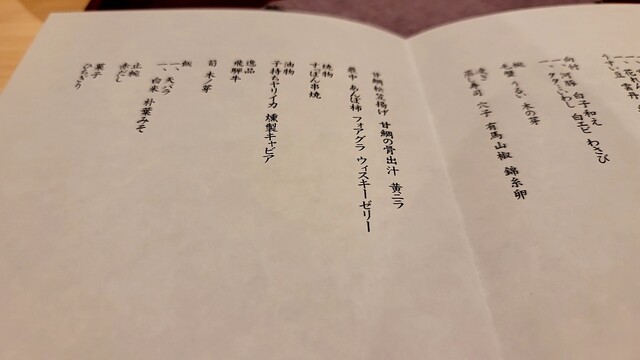 向付
一、河豚 白子和え
一、タタミいわし 白エビ わさび
椀
毛蟹 うるい 木の芽
蒸し寿司 穴子 有馬山椒 錦糸卵
甘鯛松笠揚げ 甘鯛の骨出汁 黄ニラ
最中 あんぽ柿 フォアグラ ウィスキーゼリー
焼物
すっぽん串焼
油物
子持ちヤリイカ 燻製キャビア
逸品
飛騨牛
筍 木ノ芽
飯
一、天バラ
一、白米 朴葉みそ
止椀
赤だし
菓子
ひとさり